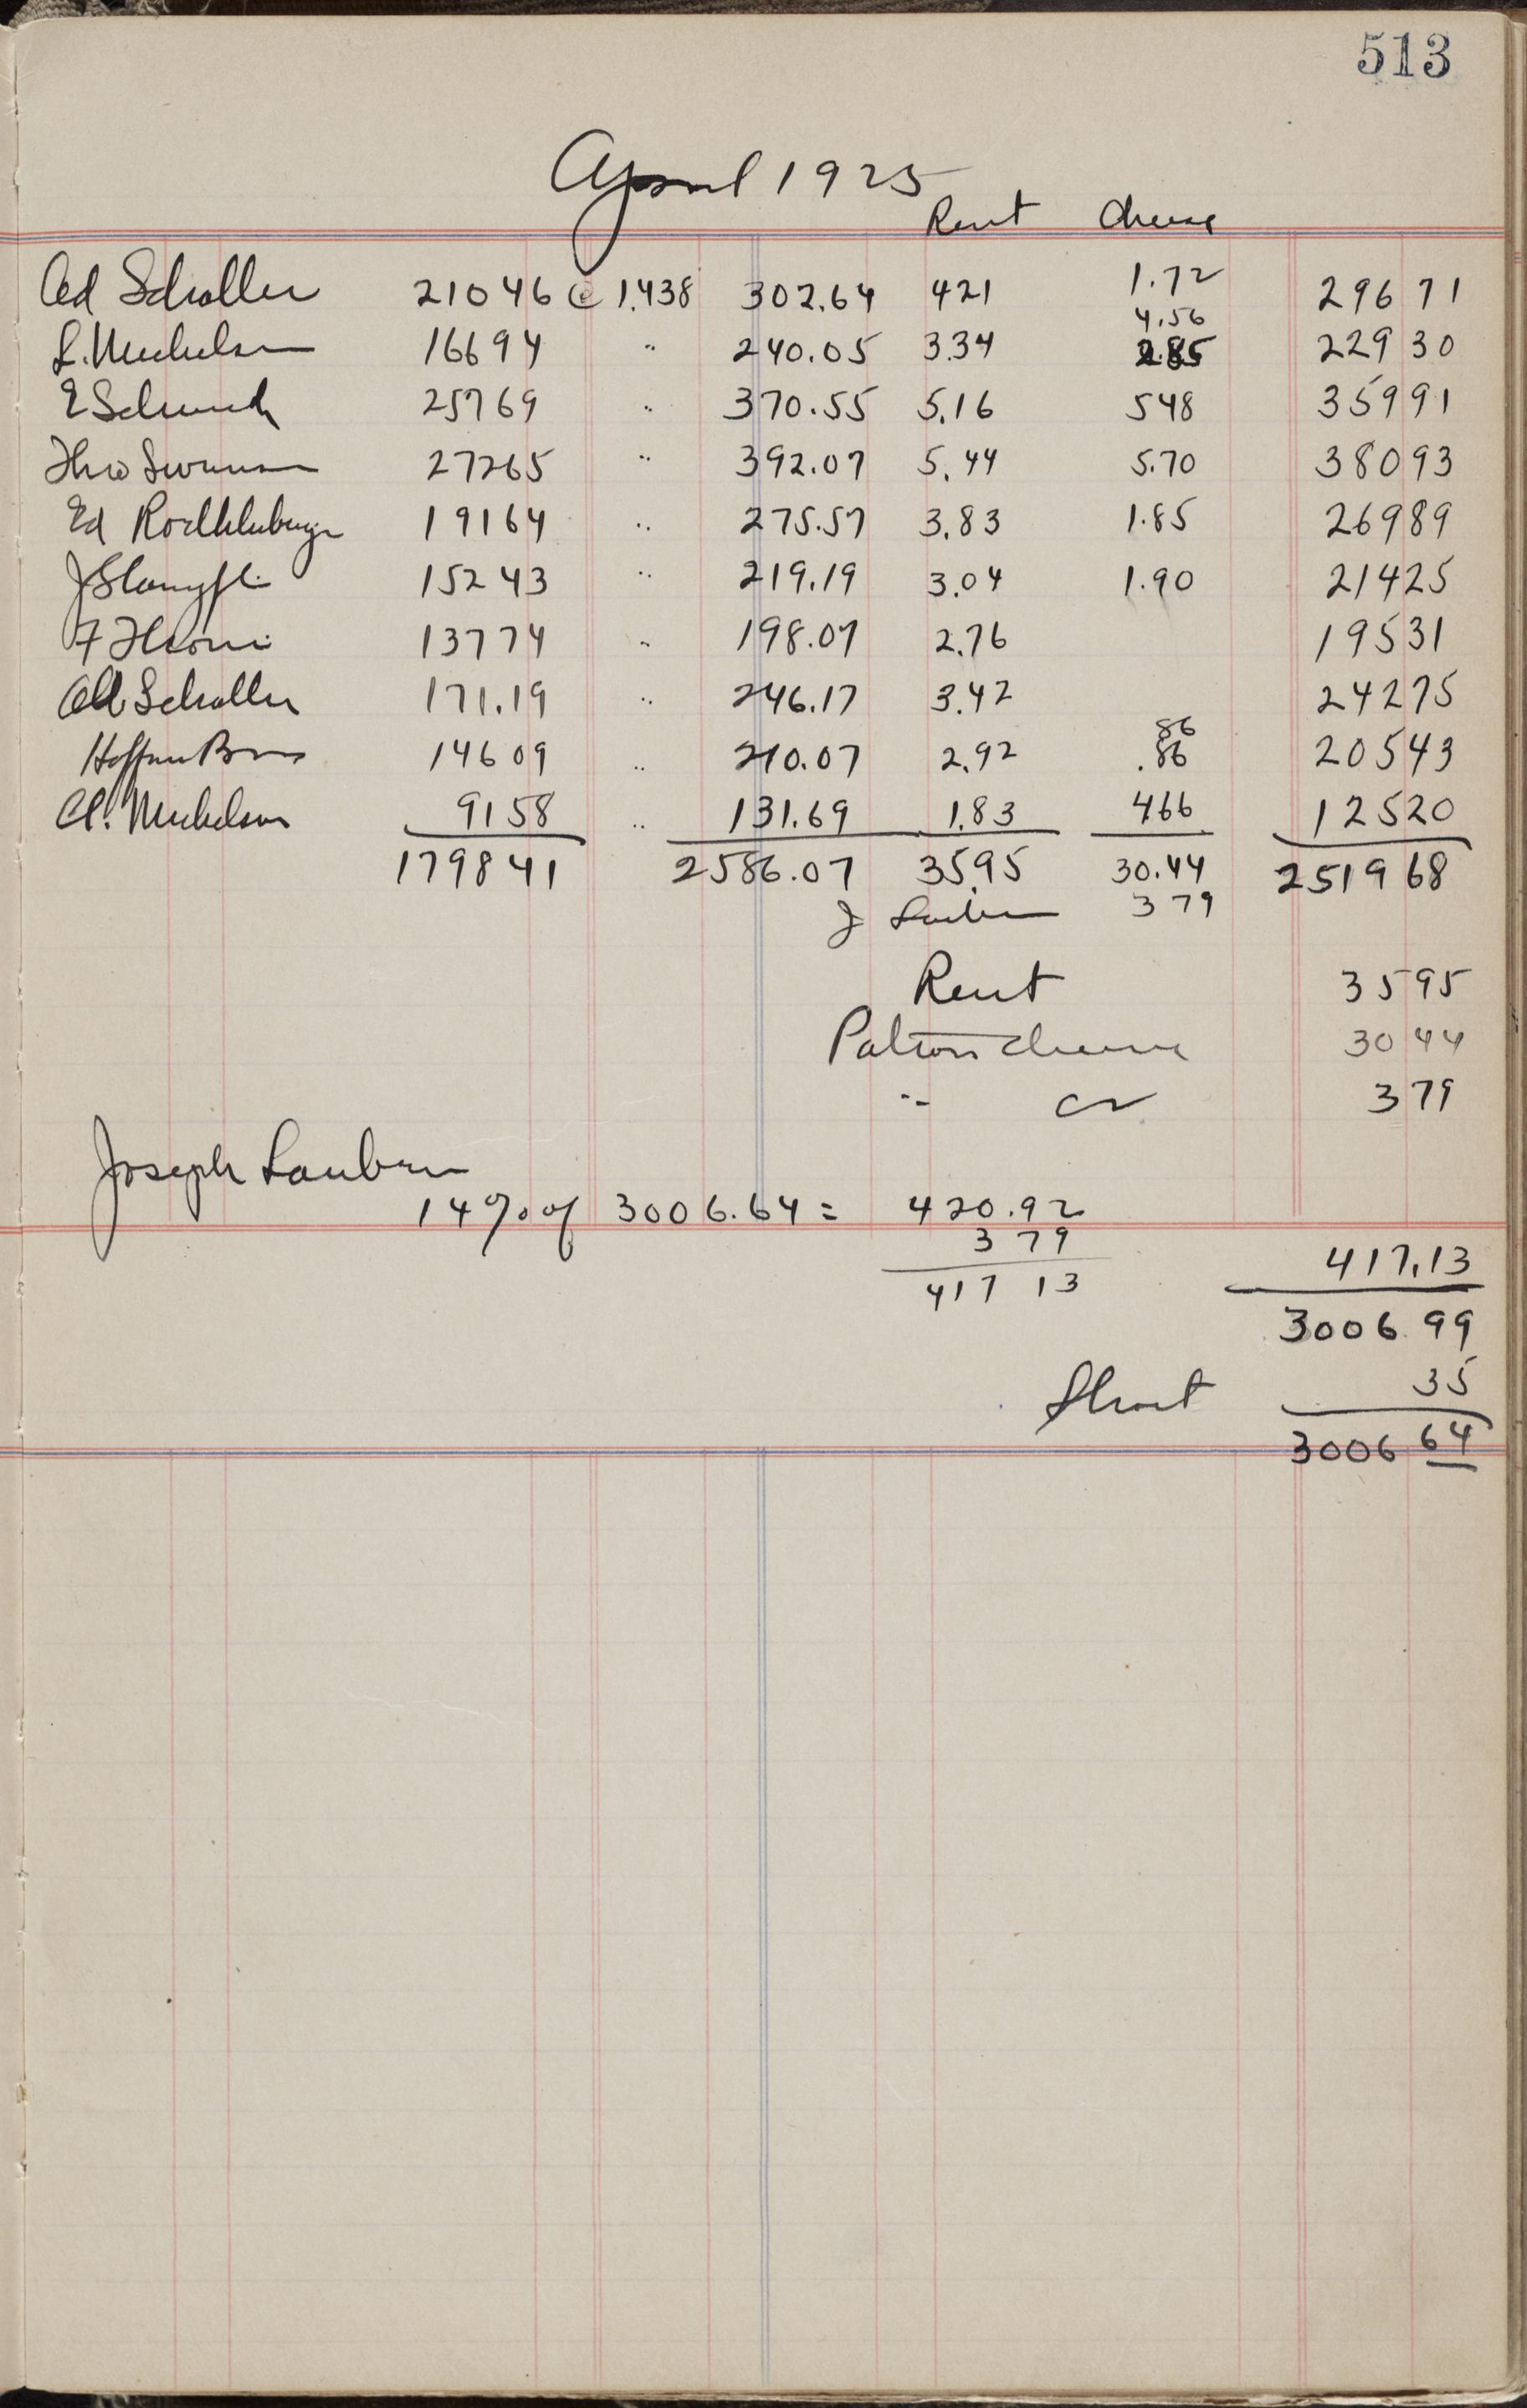 513
April 1925
Rent Cheese
Ad Schaller 21046 @ 1.438 302.64 421 1.72 296 71
4.56
L. Michelson 16694 " 240.05 3.34 2.85 229 30
E Schmid 25769 " 370.55 5.16 548 359 91
Theo Swanson 27265 " 392.07 5.44 5.70 380 93
Ed 19164 " 275.57 3.83 1.85 269 89
J 15243 " 219.19 3.04 1.90 214 25
F 13774 " 198.07 2.76 195 31
Alb Schaller 171.19 " 246.17 3.42 242 75
86
Hoffman Bros 14609 " 210.07 2.92 .86 205 43
Cl. Michelson 9158 " 131.69 1.83 466 125 20
179841 2586.07 35.95 30.44 2519 68
J Lauber 3 79
Rent 35 95
Patrons cheese 30 44
" cr 3 79
Joseph Lauber
14% of 3006.64 = 420.92
3 79
417 13
417.13
3006 99
Short 35
3006 64